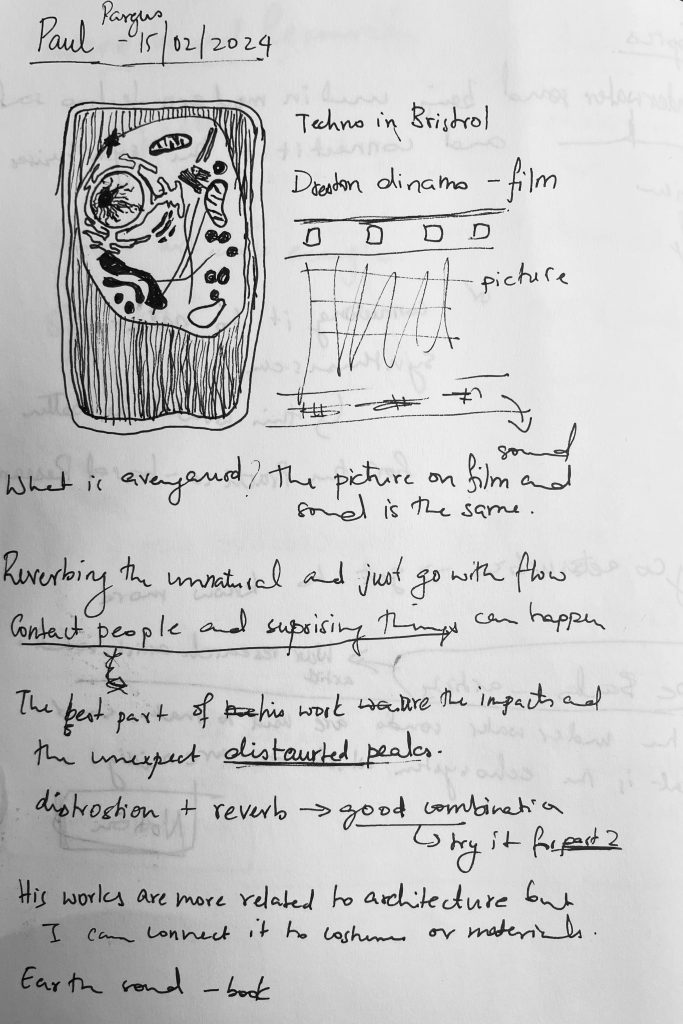 Pargus
Paul - 15/02/2024
Techno in Bristrol
Dreston dinamo - film
picture
sound
What is avengaurd? The picture on film and
sound is the same.
Reverbing the unnatural and just go with flow
Contact people and suprising things can happen
The best part of his work are the impacts and
the unexpect distaurted peaks.
distrostion + reverb → good combination
try it for part 2
His works are more related to architecture but
I can connect it to costume or materials.
Earth sound - book